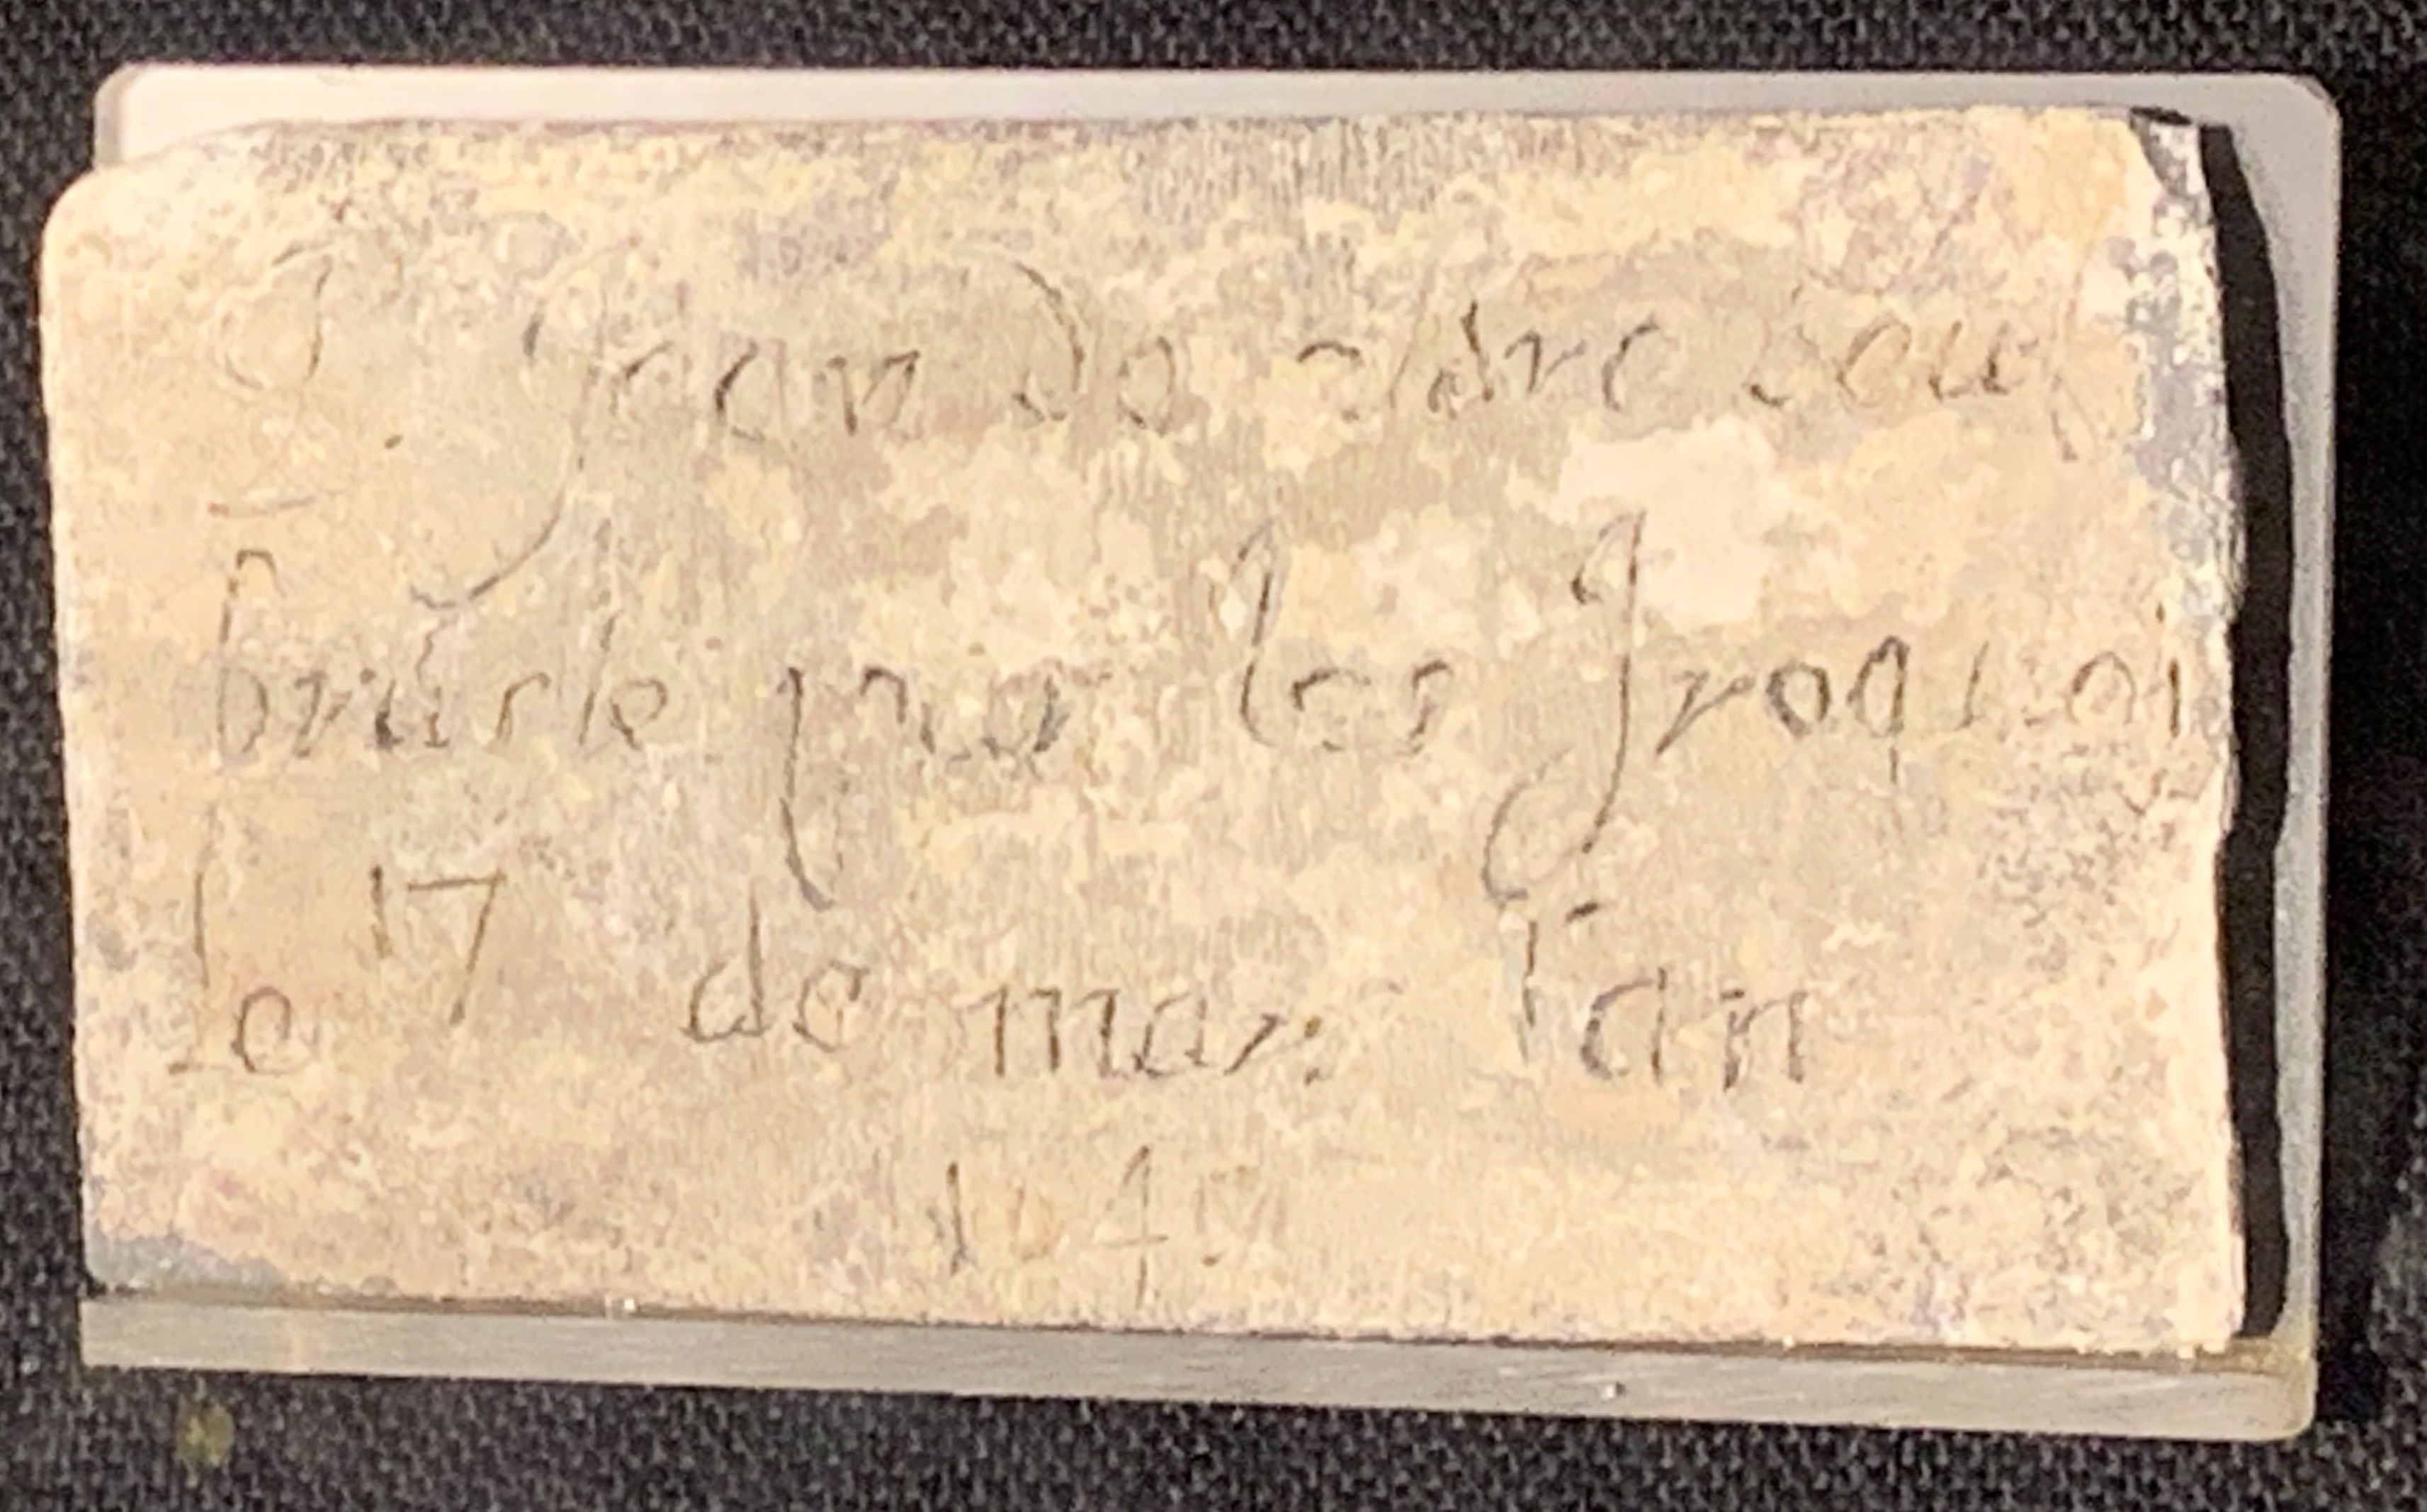 P. Jean de Brebeuf
bruslé par les Iroquois
le 17 de mars l'an
1649